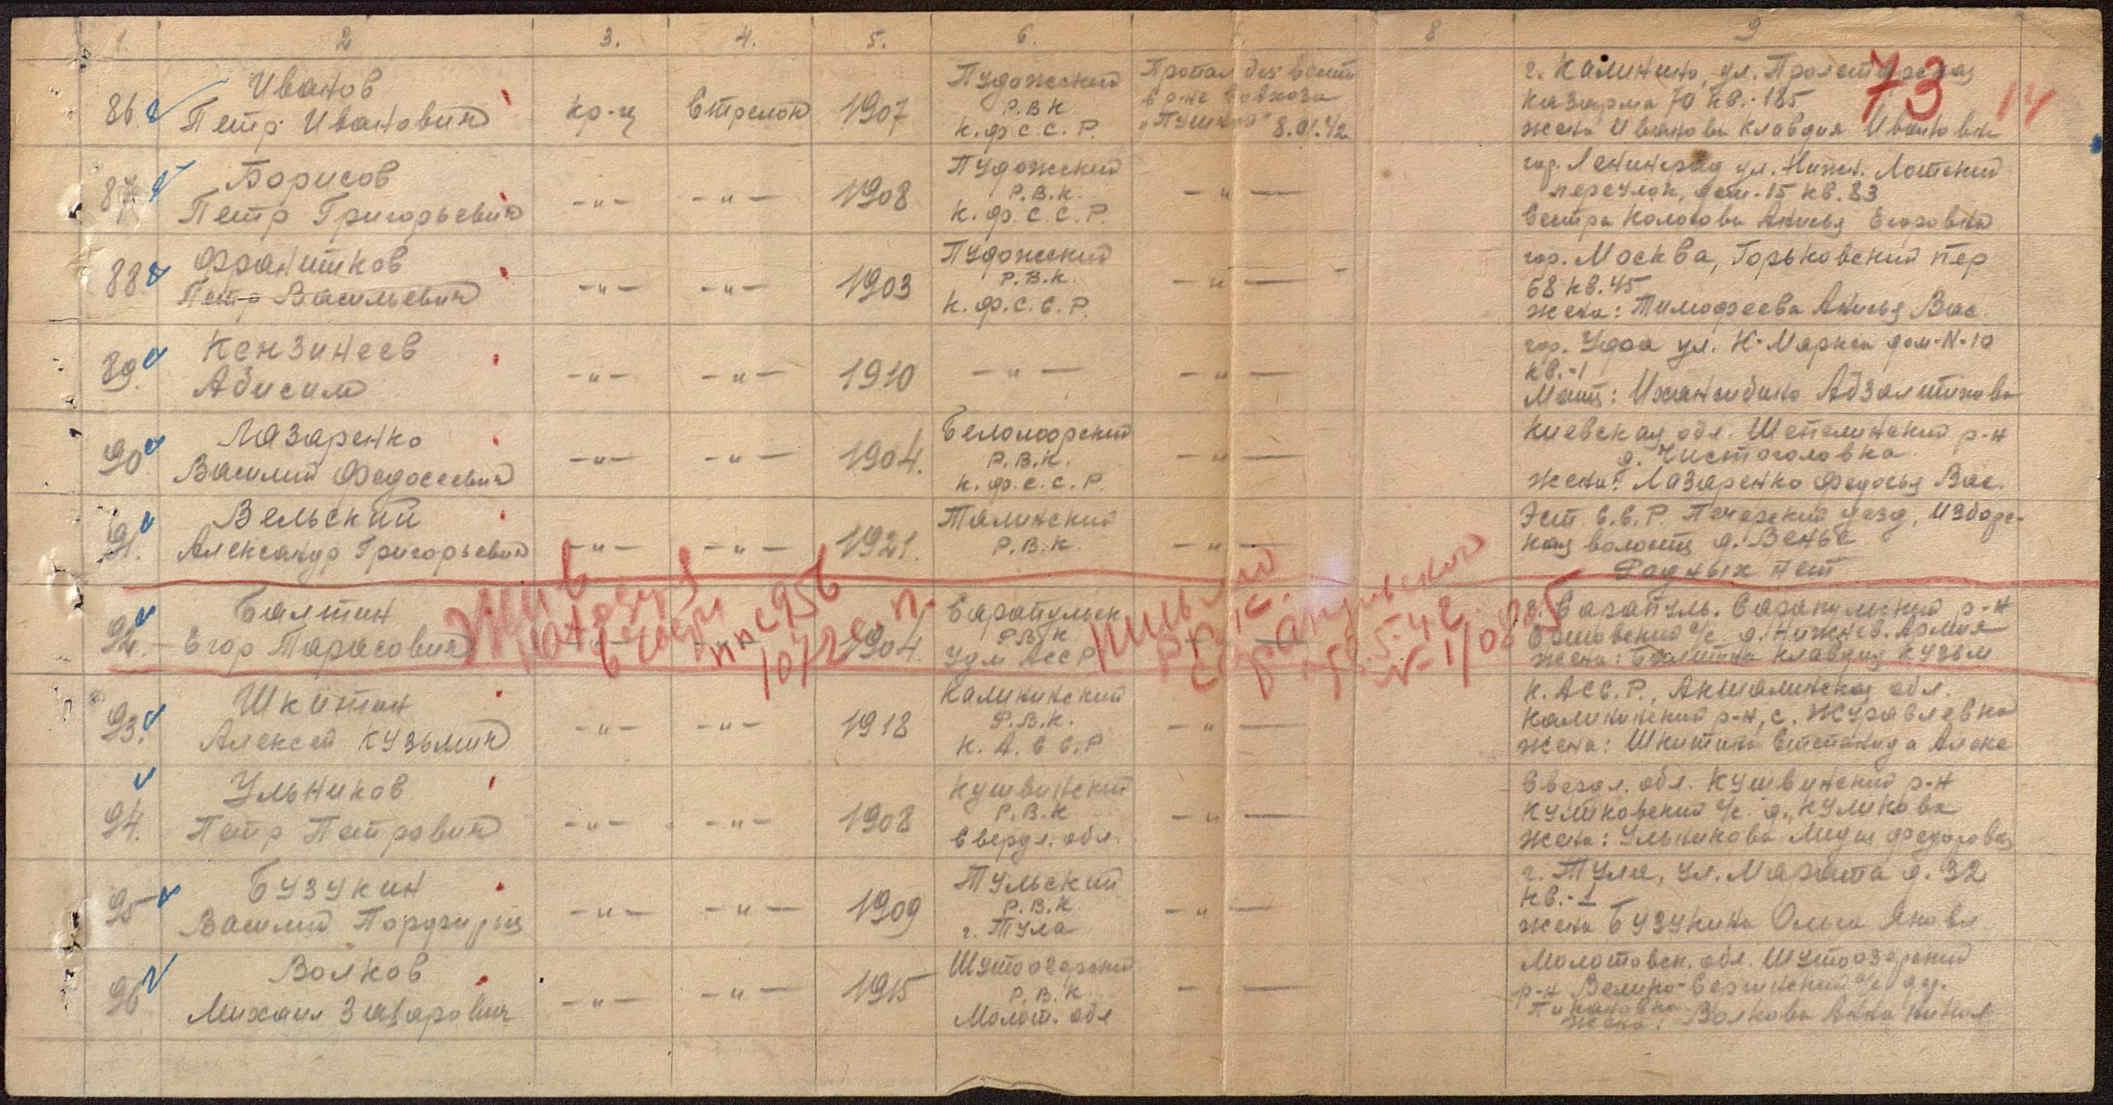 1. 2 3. 4. 5. 6. 8 9
73 14
86. Иванов
Петр Иванович
кр-ц Стрелок 1907
Пудожский
Р.В.К
К.Ф.С.С.Р.
Пропал без вести
в р-не Совхоза
"Пушной" 8.01.42
г. Калинин, ул. Пролетарская
казарма 70 кв.-185
жена Иванова Клавдия Ивановна
87 Борисов
Петр Григорьевич
-"- -"- 1908
Пудожский
Р.В.К.
К.Ф.С.С.Р.
-"-
гор. Ленинград ул. Нижн.
переулок, дом-15 кв. 83
Сестра Анисья Егоровна
88 Петр Васильевич
-"- -"- 1903
Пудожский
Р.В.К.
К.Ф.С.С.Р.
-"-
гор. Москва, Горьковский пер
68 кв. 45
жена: Тимофеева Анисья Вас.
89. Кензинеев
Абисим
-"- -"- 1910 -"- -"-
гор. Уфа ул. К-Маркса дом-N-10
кв.-1
Мать:
90 Лазаренко
Василий Федосеевич
-"- -"- 1904.
Беломорский
Р.В.К.
К.Ф.С.С.Р.
-"-
Киевская обл. р-н
д. Чистоголовка
жена: Лазаренко Федосья Вас.
91. Вельский
Александр Григорьевич
-"- -"- 1921.
Талинский
Р.В.К.
-"-
Эст. С.С.Р. Печерский уезд, Изборс-
кая волость д.
Родных нет
92. Балтин
Егор Тарасович
1904.
Сарапульск
РВК
Удм АССР
г. Сарапуль. Сарапульский р-н
с/с. д.
жена: Клавдия Кузьм
жив
ппс 956
1072 с.п.
письмо
РВК
Сарапульского
5.42
N-1/0885
93. Шкитин
Алексей Кузьмич
-"- -"- 1918
Калининский
Р.В.К.
К.А.С.С.Р
-"-
К.АСС.Р., Акмолинская обл.
Калининский р-н, с. Журавлевка
жена: Шкитина Степанида Алекс
94. Ульников
Петр Петрович
-"- -"- 1908
Кушвинский
Р.В.К
Свердл. обл.
-"-
Свердл. обл. Кушвинский р-н
с/с. д. Куликова
жена: Ульникова Лидия Федоровна
95 Бузукин
Василий
-"- -"- 1909
Тульский
Р.В.К.
г. Тула
-"-
г. Тула, ул. Марата д. 32
кв.-1
жена Бузукина Ольга Яковл
96 Волков
Михаил
-"- -"- 1915
Р.В.К
Молот. обл
Молотовск. обл.
р-н с/с
жена: Волкова Анна